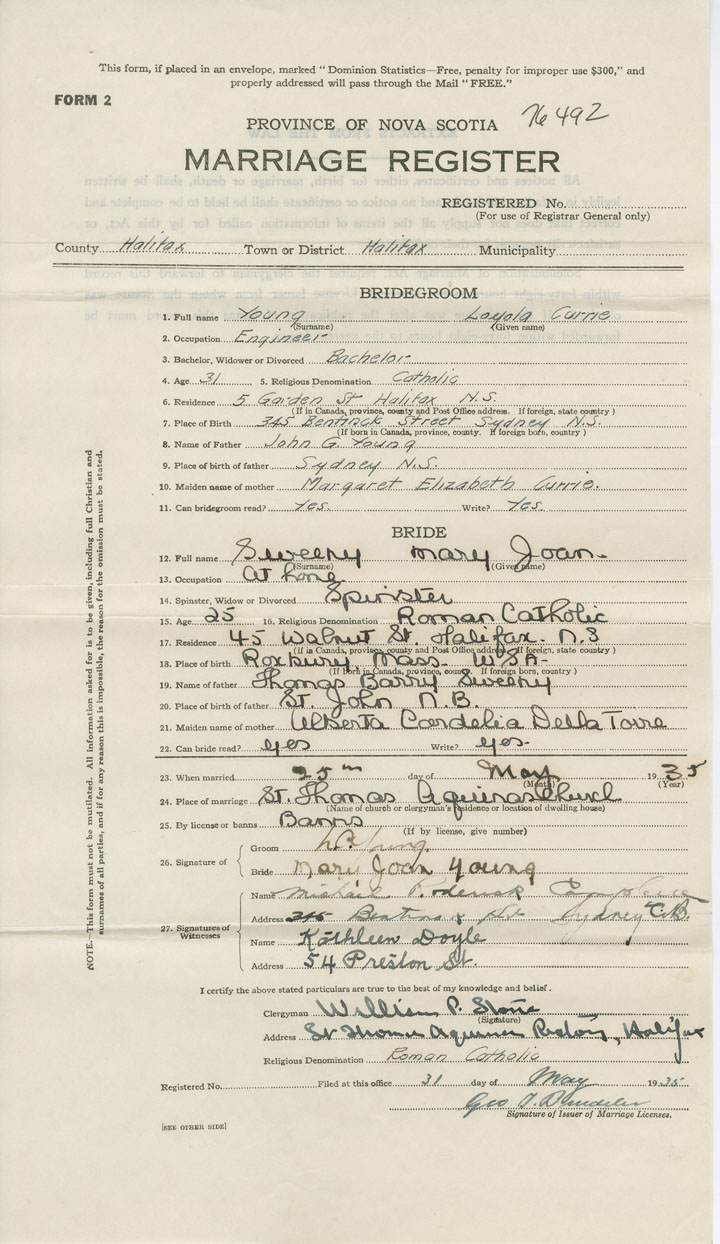 This form, if placed in an envelope, marked "Dominion Statistics—Free, penalty for improper use $300," and
properly addressed will pass through the Mail "FREE."
FORM 2
PROVINCE OF NOVA SCOTIA 76492
MARRIAGE REGISTER
REGISTERED No.
(For use of Registrar General only)
County Halifax Town or District Halifax Municipality
BRIDEGROOM
1. Full name Young Loyola Currie
(Surname) (Given name)
2. Occupation Engineer
3. Bachelor, Widower or Divorced Bachelor
4. Age 31 5. Religious Denomination Catholic
6. Residence 5 Garden St Halifax N.S.
(If in Canada, province, county and Post Office address. If foreign, state country)
7. Place of Birth 345 Bentinck Street Sydney N.S.
(If born in Canada, province, county. If foreign born, country)
8. Name of Father John G. Young
9. Place of birth of father Sydney N.S.
10. Maiden name of mother Margaret Elizabeth Currie.
11. Can bridegroom read? Yes. Write? Yes.
BRIDE
12. Full name Sweeny Mary Joan.
(Surname) (Given name)
13. Occupation At home
14. Spinster, Widow or Divorced Spinster
15. Age 25 16. Religious Denomination Roman Catholic
17. Residence 45 Walnut St. Halifax. N.S
(If in Canada, province, county and Post Office address. If foreign, state country)
18. Place of birth Roxbury, Mass. U.S.A.
(If born in Canada, province, county. If foreign born, country)
19. Name of father Thomas Barry Sweeny
20. Place of birth of father St. John N.B.
21. Maiden name of mother Alberta Cordelia Della Torre
22. Can bride read? yes Write? yes.
23. When married 25th day of May 1935
(Month) (Year)
24. Place of marriage St. Thomas Aquinas Church
(Name of church or clergyman's residence or location of dwelling house)
25. By license or banns Banns
(If by license, give number)
26. Signature of
Groom L.C. Young
Bride Mary Joan Young
27. Signatures of Witnesses
Name Michael Roderick
Address 345 Sydney C.B.
Name Kathleen Doyle
Address 54 Preston St.
I certify the above stated particulars are true to the best of my knowledge and belief.
Clergyman William P.
(Signature)
Address St Thomas Aquinas Halifax
Religious Denomination Roman Catholic
Registered No. Filed at this office 31 day of May 1935
Geo
Signature of Issuer of Marriage Licenses.
[SEE OTHER SIDE]
NOTE.—This form must not be mutilated. All information asked for is to be given, including full Christian and
surnames of all parties, and if for any reason this is impossible, the reason for the omission must be stated.